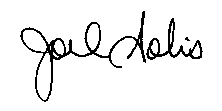 Joel Solis